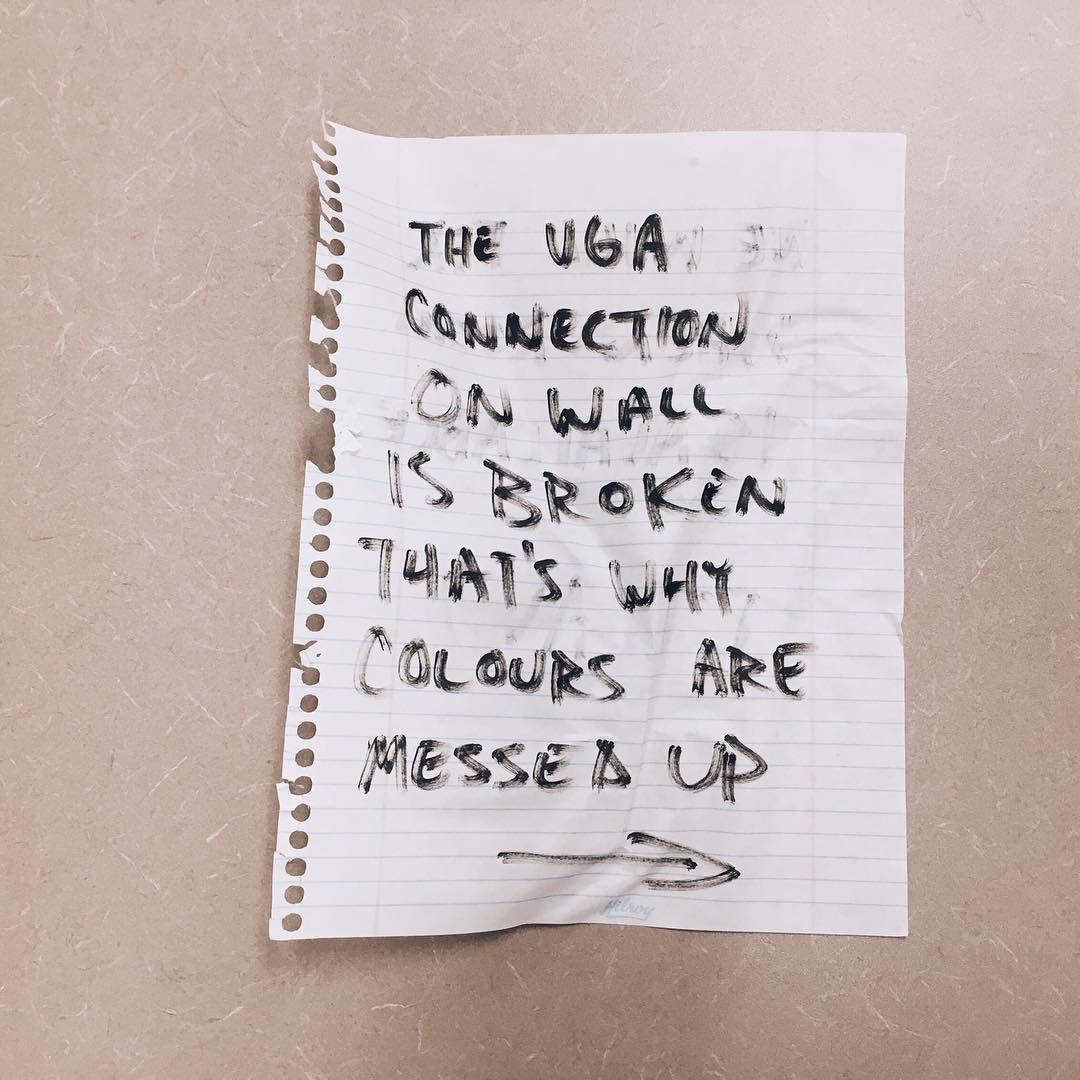 THE VGA
CONNECTION
ON WALL
IS BROKEN
THAT'S WHY
COLOURS ARE
MESSED UP
Hilroy